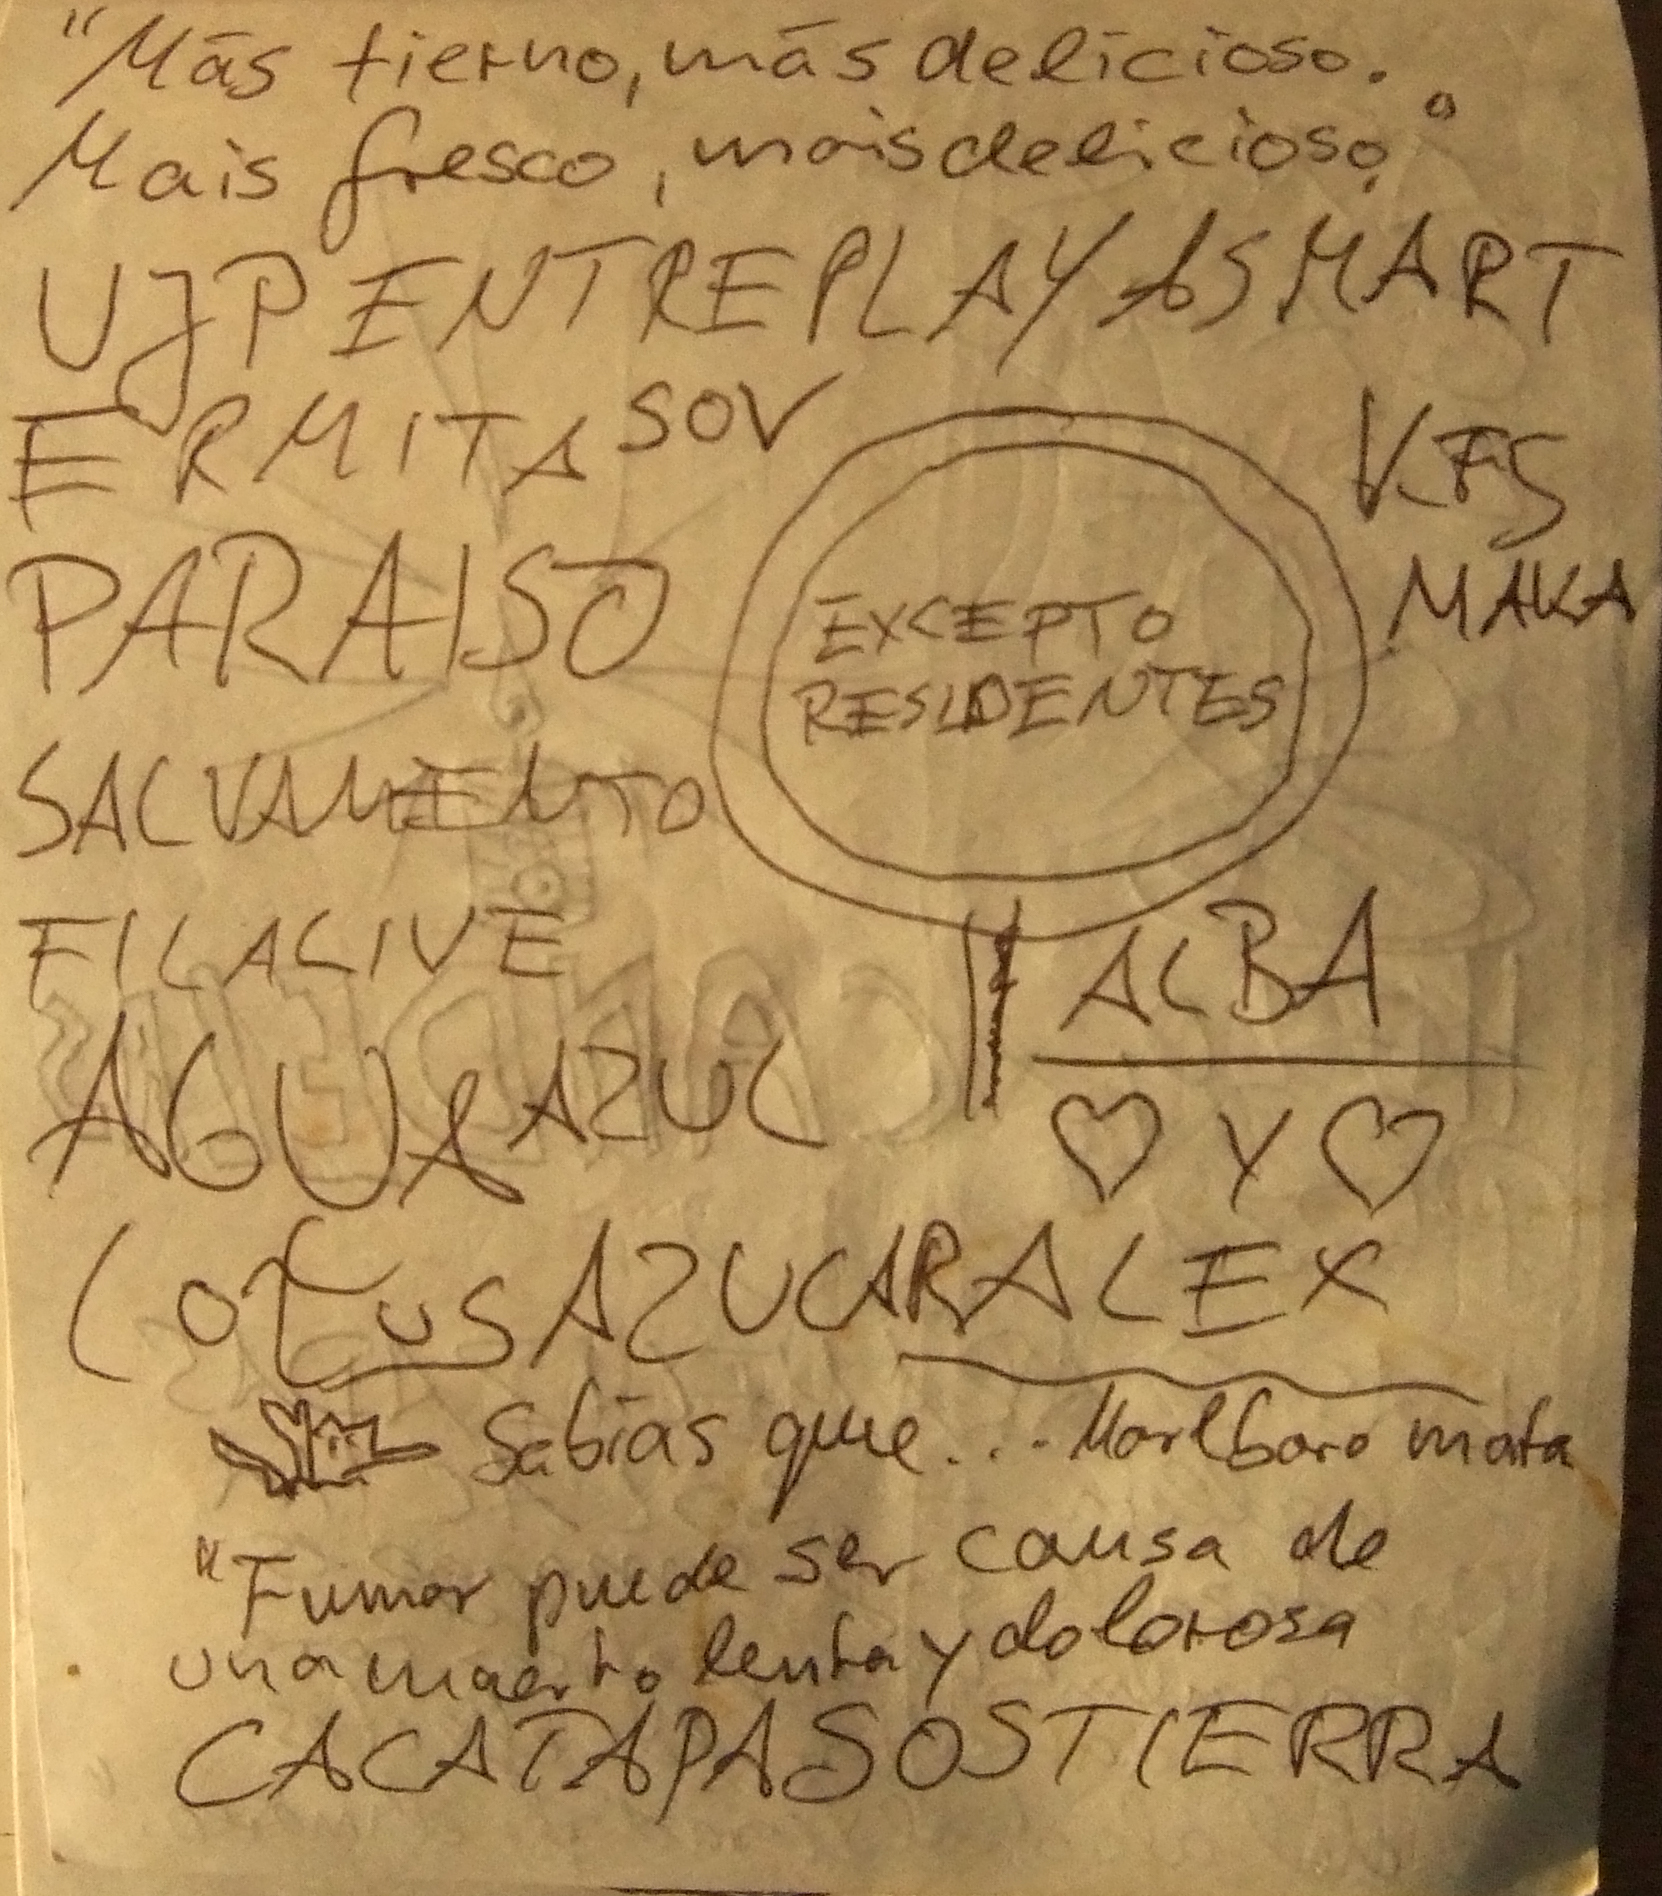 "Más tierno, más delicioso.
Mais fresco, mais delicioso."
UJP ENTREPLAYASMART
ERMITA SOV
VFS
PARAISO
MAKA
EXCEPTO
RESIDENTES
SALVAMENTO
FILALIVE
ALBA
AGUA AZUL
♡ Y ♡
LOTUS AZUCARALEX
Sabías que... Marlboro mata
"Fumar puede ser causa de
una muerte lenta y dolorosa
CACATAPASOSTIERRA